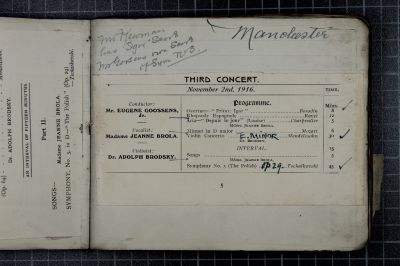 Mr Newman
has Sgn Score
Mr Goossens own Score
of Sym No 3
Manchester
THIRD CONCERT.
November 2nd, 1916.
Conductor:
Mr. EUGENE GOOSSENS,
Jr.
Vocalist:
Madame JEANNE BROLA.
Violinist:
Dr. ADOLPH BRODSKY.
Programme.
Overture—"Prince Igor" Borodin 8
Rhapsodie Espagnole Ravel 12
Aria—"Depuis le jour" (Louise) Charpentier 5
Mdme. JEANNE BROLA.
Minuet in D major Mozart 6
Violin Concerto E. MINOR Mendelssohn
Dr. BRODSKY.
INTERVAL. 15
Songs 5
Mdme. JEANNE BROLA.
Symphony No. 3 (The Polish) OP 29 Tschaikowski 45
Mins.
8
Part II.
SONGS—
Madame JEANNE BROLA
SYMPHONY, No. 3, in D—"The Polish" (Op. 29)
Tschaikowski.
Dr. ADOLPH BRODSKY.
AN INTERVAL OF FIFTEEN MINUTES
(Op. 64)